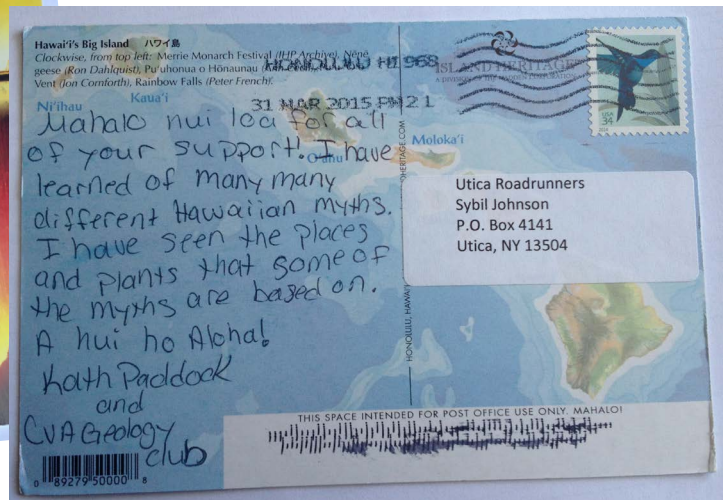 Hawai'i's Big Island ハワイ島
Clockwise, from top left: Merrie Monarch Festival (IHP Archive), Nēnē
geese (Ron Dahlquist), Pu'uhonua o Hōnaunau
Vent (Jon Cornforth), Rainbow Falls (Peter French).
HONOLULU HI 968
31 MAR 2015 PM 2 L
ISLAND HERITAGE
USA
34
Ni'ihau
Kaua'i
O'ahu
Moloka'i
Mahalo nui loa for all
of your support! I have
learned of many many
different Hawaiian myths.
I have seen the places
and plants that some of
the myths are based on.
A hui ho Aloha!
Kath Paddock
and
CVA Geology
club
Utica Roadrunners
Sybil Johnson
P.O. Box 4141
Utica, NY 13504
HONOLULU, HAWAI'I
THIS SPACE INTENDED FOR POST OFFICE USE ONLY. MAHALO!
0 89279 50000 8